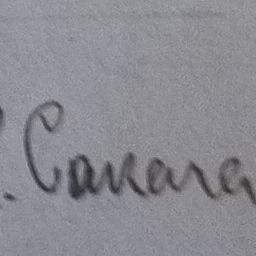 . Canara